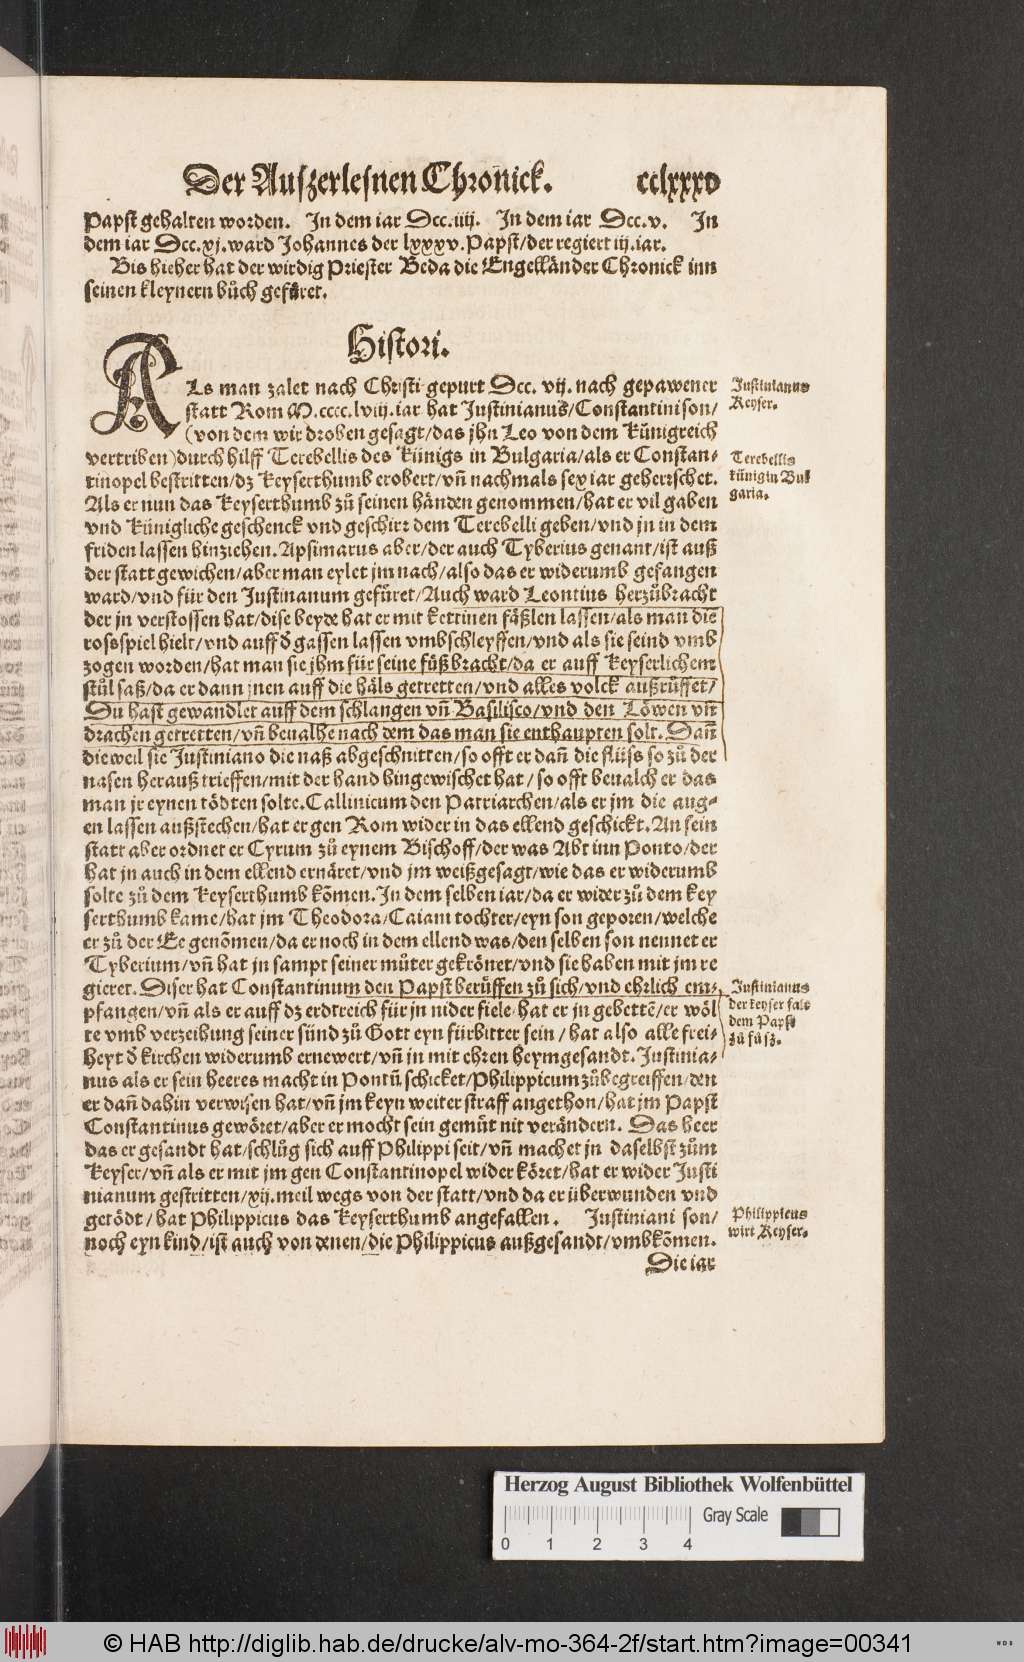 Der Auſzerleſnen Chronick. cclxxxv
Papſt gehalten worden. In dem iar Dcc.iiij. In dem iar Dcc.v. In
dem iar Dcc.xj.ward Johannes der lxxxv.Papſt/der regiert iij.iar.
Bis hieher hat der wirdig Prieſter Beda die Engelländer Chronick inn
ſeinen kleynern bůch gefůret.
Hiſtori.
ALs man zalet nach Chriſti gepurt Dcc. vij. nach gepawener
ſtatt Rom M.cccc.lviij.iar hat Juſtinianus/Conſtantini ſon/
(von dem wir droben geſagt/das jhn Leo von dem Künigreich
vertriben)durch hilff Terebellis des Künigs in Bulgaria/als er Conſtan-
tinopel beſtritten/dz Keyſerthumb erobert/vñ nachmals ſex iar geherrſchet.
Als er nun das Keyſerthumb zů ſeinen händen genommen/hat er vil gaben
vnd Künigliche geſchenck vnd geſchirꝛ dem Terebelli geben/vnd jn in dem
friden laſſen hinziehen. Apſimarus aber/der auch Tyberius genant/iſt auß
der ſtatt gewichen/aber man eylet jm nach/alſo das er widerumb gefangen
ward/vnd für den Juſtinanum gefüret/Auch ward Leontius herzůbracht
der jn verſtoſſen hat/diſe beyde hat er mit kettinen fäßlen laſſen/als man die
roſsſpiel hielt/vnd auff ð gaſſen laſſen vmbſchleyffen/vnd als ſie ſeind vmb
zogen worden/hat man ſie jhm für ſeine fůß bracht/da er auff Keyſerlichem
ſtůl ſaß/da er dann jnen auff die häls getretten/vnd alles volck außrůffet/
Du haſt gewandlet auff dem ſchlangen vñ Baſiliſco/vnd den Löwen vñ
drachen getretten/vñ beualhe nach dem das man ſie enthaupten ſolt. Dañ
dieweil ſie Juſtiniano die naß abgeſchnitten/ſo offt er dañ die flüſs ſo zů der
naſen herauß trieffen/mit der hand hingewiſchet hat/ſo offt beualch er das
man jr eynen tödten ſolte.Callinicum den Patriarchen/als er jm die aug-
en laſſen außſtechen/hat er gen Rom wider in das ellend geſchickt.An ſein
ſtatt aber ordnet er Cyrum zů eynem Biſchoff/der was Abt inn Ponto/der
hat jn auch in dem ellend ernäret/vnd jm weißgeſagt/wie das er widerumb
ſolte zů dem Keyſerthumb kömen.In dem ſelben iar/da er wider zů dem key
ſerthumb kame/hat jm Theodora/Caiani tochter/eyn ſon geporen/welche
er zů der Ee genömen/da er noch in dem ellend was/den ſelben ſon nennet er
Tyberium/vñ hat jn ſampt ſeiner můter gekrönet/vnd ſie haben mit jm re
gieret. Diſer hat Conſtantinum den Papſt berůffen zů ſich/vnd ehrlich em-
pfangen/vñ als er auff dz erdtreich für jn nider fiele hat er jn gebettẽ/er wöl
te vmb verzeihung ſeiner ſünd zů Gott eyn fürbitter ſein/hat alſo alle frei-
heyt ð kirchen widerumb ernewert/vñ jn mit ehren heymgeſandt.Juſtinia-
nus als er ſein heeres macht in Pontũ ſchicket/Philippicum zůbegreiffen/den
er dañ dahin verwiſen hat/vñ jm keyn weiter ſtraff angethon/hat jm Papſt
Conſtantinus gewöret/aber er mocht ſein gemüt nit verändern. Das heer
das er geſandt hat/ſchlůg ſich auff Philippi ſeit/vñ machet jn daſelbſt zům
Keyſer/vñ als er mit jm gen Conſtantinopel wider köret/hat er wider Juſti
nianum geſtritten/xij.meil wegs von der ſtatt/vnd da er überwunden vnd
getödt/hat Philippicus das Keyſerthumb angefallen. Juſtiniani ſon/
noch eyn kind/iſt auch von denen/die Philippicus außgeſandt/vmbkömen.
Die iar
Juſtinianus
Keyſer.
Terebellis
künig in Bul
garia.
Juſtinianus
der keyſer fals
dem Papſt
zů fůſz.
Philippicus
wirt Keyſer.
Herzog August Bibliothek Wolfenbüttel
Gray Scale
0 1 2 3 4
© HAB http://diglib.hab.de/drucke/alv-mo-364-2f/start.htm?image=00341